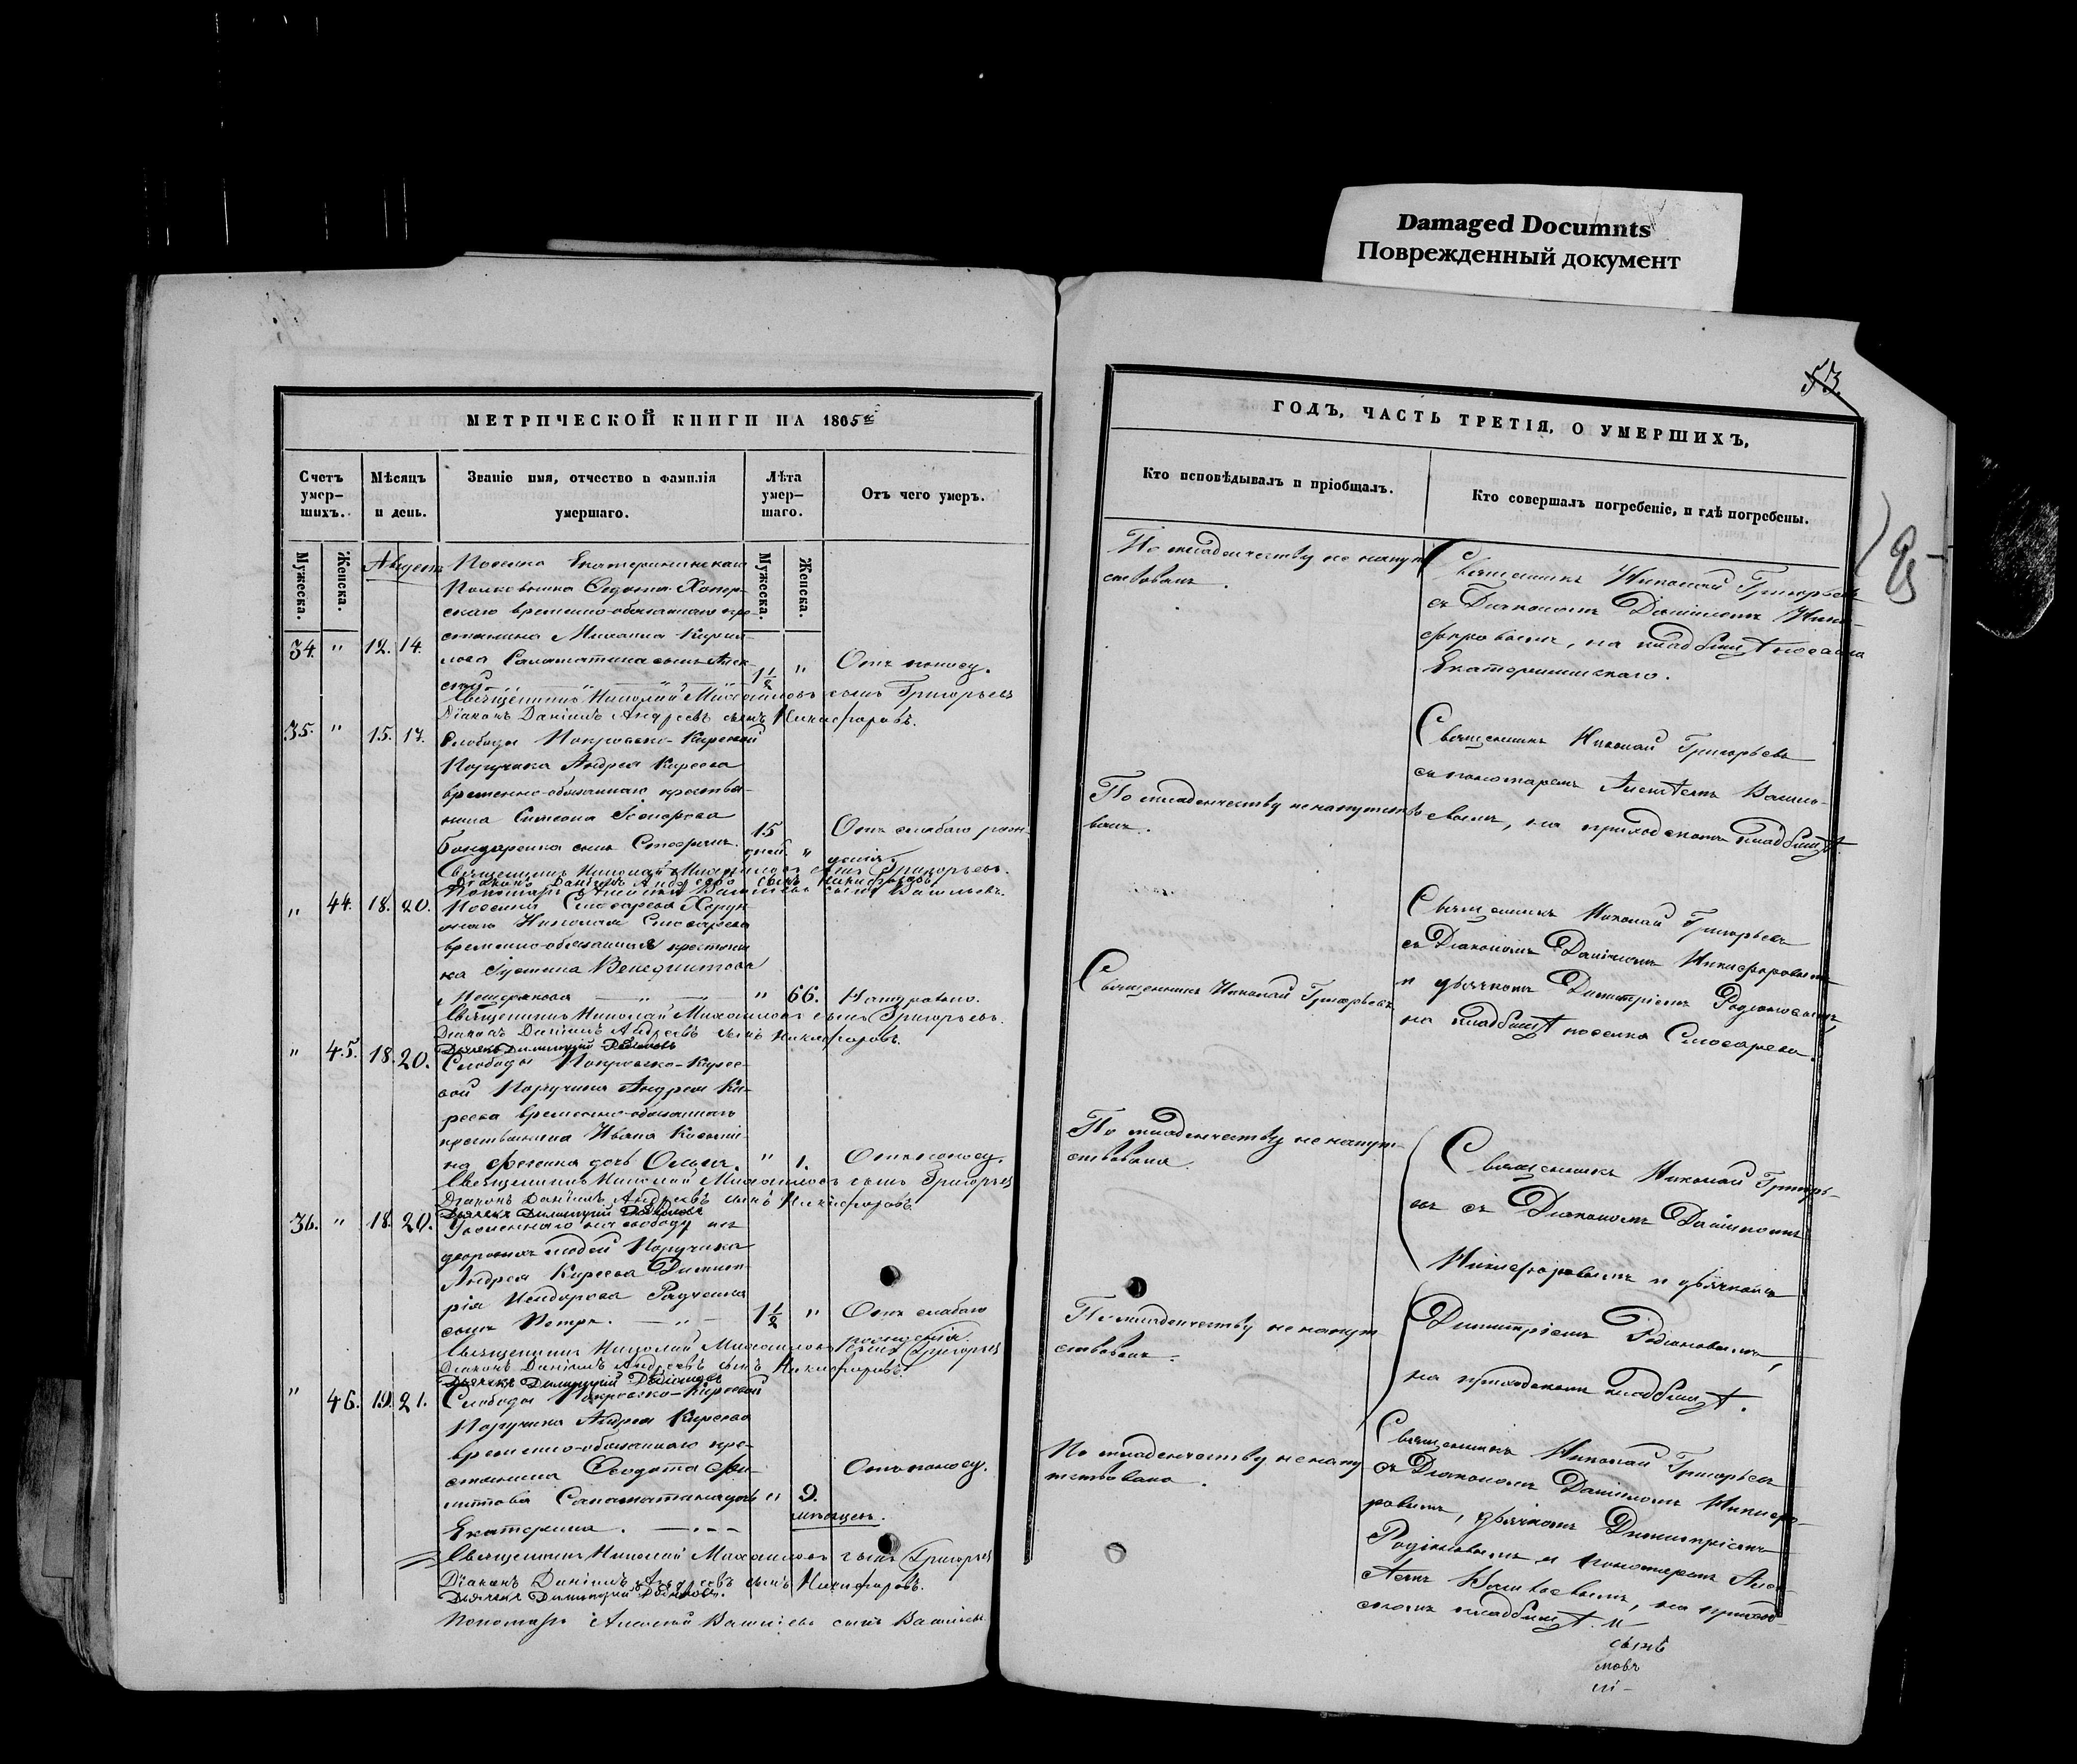 Damaged Documnts
Поврежденный документ
53.
МЕТРИЧЕСКОЙ КНИГИ НА 1865й
Счетъ умер-
шихъ.
Мѣсяцъ
и день.
Званіе имя, отчество и фамилія
умершаго.
Лѣта
умер-
шаго.
Отъ чего умеръ.
Мужеска.
Женска.
Мужеска.
Женска.
Августъ
Поселка Екатерининскаго
Полковника Федота Хопер-
скаго временно-обязаннаго кре-
стьянина Михаила Кирил-
34. " 12. 14.
лова Саламатина сынъ Алек-
сѣй. 1½ " Отъ поносу.
Священникъ Николай Михаиловъ сынъ Григорьевъ
Діаконъ Даніилъ Андреевъ сынъ Никифоровъ.
35. " 15. 17. Слободы Покровско-Кирсевой
Поручика Андрея Киреева
временно-обязаннаго крестья-
нина Симеона
Бондаренка сынъ Стефанъ. 15 дней. " Отъ слабаго рож-
денія.
Священникъ Николай Михаиловъ сынъ Григорьевъ.
Діаконъ Даніилъ Андреевъ сынъ Никифоровъ
Пономарь Алексѣй Васильевъ сынъ Васильевъ.
" 44. 18. 20. Поселка Слюсарева Хорун-
жаго Николая Слюсарева
временно-обязанная крестьян-
ка Венедиктова
" 66. Натурально.
Священникъ Николай Михаиловъ сынъ Григорьевъ.
Діаконъ Даніилъ Андреевъ сынъ Никифоровъ.
Дьячекъ Димитрій
" 45. 18. 20. Слободы Покровско-Кирее-
вой Поручика Андрея Ки-
реева временно-обязаннаго
крестьянина Ивана
дочь Ольга. " 1. Отъ поносу.
Священникъ Николай Михаиловъ сынъ Григорьевъ
Діаконъ Даніилъ Андреевъ сынъ Никифоровъ
Дьячекъ Димитрій
36. " 18. 20. Уволеннаго на свободу изъ
дворовыхъ людей Поручика
Андрея Киреева Димит-
рія Исидорова Радченка
сынъ Петръ. 1½ " Отъ слабаго
рожденія.
Священникъ Николай Михаиловъ сынъ Григорьевъ
Діаконъ Даніилъ Андреевъ сынъ Никифоровъ.
Дьячекъ Димитрій
" 46. 19. 21. Слободы Покровско-Киреевой
Поручика Андрея Киреева
временно-обязаннаго кре-
стьянина Феодота Фи-
липова дочь " 9. мѣсяцев. Отъ поносу.
Екатерина.
Священникъ Николай Михаиловъ сынъ Григорьевъ
Діаконъ Даніилъ Андреевъ сынъ Никифоровъ.
Дьячекъ Димитрій
Пономарь Алексѣй Васильевъ сынъ Васильевъ
ГОДЪ, ЧАСТЬ ТРЕТІЯ, О УМЕРШИХЪ,
Кто исповѣдывалъ и пріобщалъ.
Кто совершалъ погребеніе, и гдѣ погребены.
По младенчеству не напут-
ствованъ.
Священникъ Николай Григорьевъ
съ Діакономъ Даніиломъ Ники-
форовымъ, на кладбищѣ поселка
Екатерининскаго.
По младенчеству не напутство-
ванъ.
Священникъ Николай Григорьевъ
съ пономаремъ Алексѣемъ Василь-
евымъ, на приходскомъ кладбищѣ.
Священникъ Николай Григорьевъ
Священникъ Николай Григорьевъ
съ Діакономъ Даніиломъ Никифоровымъ
и дьячкомъ Димитріемъ Родіоновымъ,
на кладбищѣ поселка Слюсарева.
По младенчеству не напут-
ствована.
Священникъ Николай Григорь-
евъ съ Діакономъ Даніиломъ
Никифоровымъ и дьячкомъ
По младенчеству не напут-
ствованъ.
Димитріемъ Родіоновымъ,
на приходскомъ кладбищѣ.
По младенчеству не напу-
тствована.
Священникъ Николай Григорьевъ
съ Діакономъ Даніиломъ Никифо-
ровымъ, дьячкомъ Димитріемъ
Родіоновымъ и пономаремъ Алек-
сѣемъ Васильевымъ, на приход-
скомъ кладбищѣ.
сынъ